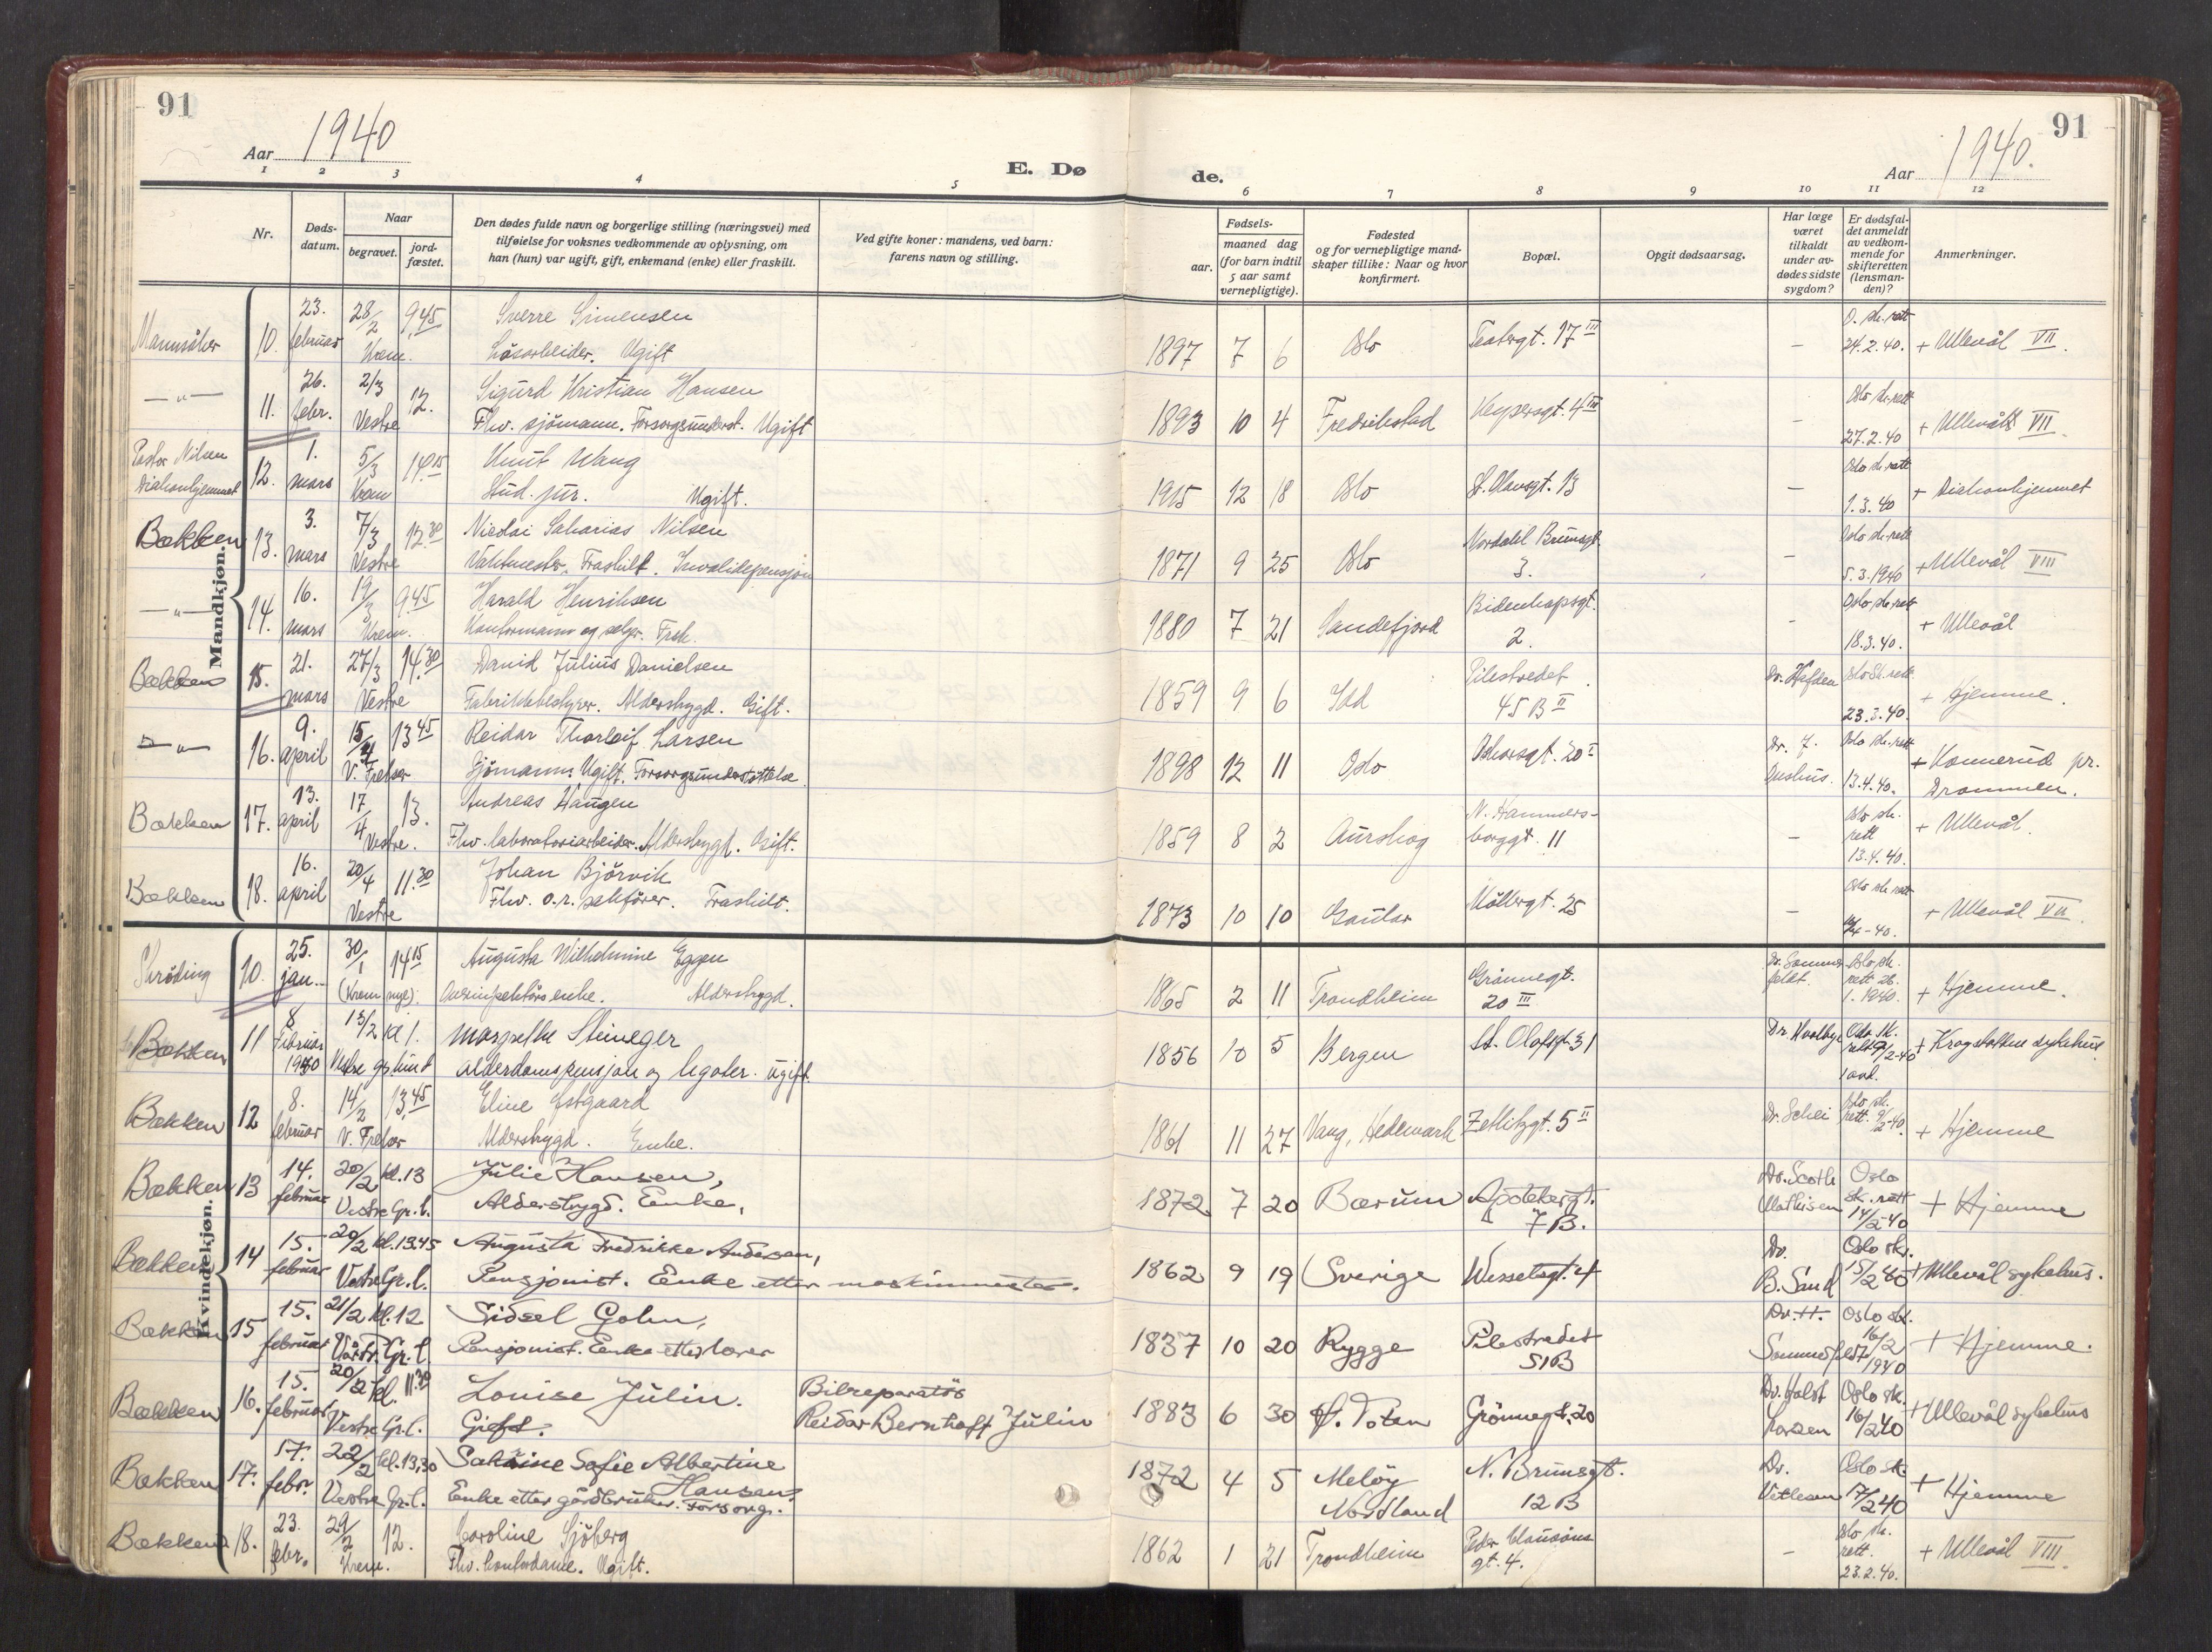 91
Aar 1940
E. Dø
1 2 3 4 5
Nr.
Døds-
datum.
Naar
begravet.
jord-
fæstet.
Den dødes fulde navn og borgerlige stilling (næringsvei) med
tilføielse for voksnes vedkommende av oplysning, om
han (hun) var ugift, gift, enkemand (enke) eller fraskilt.
Ved gifte koner: mandens, ved barn:
farens navn og stilling.
91
de.
Aar 1940.
6 7 8 9 10 11 12
Fødsels-
aar.
maaned dag
(for barn indtil
5 aar samt
vernepligtige).
Fødested
og for vernepligtige mand-
skaper tillike: Naar og hvor
konfirmert.
Bopæl.
Opgit dødsaarsag.
Har læge
været
tilkaldt
under av-
dødes sidste
sygdom?
Er dødsfal-
det anmeldt
av vedkom-
mende for
skifteretten
(lensman-
den)?
Anmerkninger.
Mandkjøn.
10. 23. februar 28/2 Krem. 9.45 Sverre Simensen
Løsarbeider. Ugift
1897 7 6 Oslo 17 III – 24.2.40. + Ullevål VII.
— " — 11. 26. febr. 2/3 Vestre 12. Sigurd Kristian Hansen
Fhv. sjömann. Forsorgsunderst. Ugift
1893 10 4 Fredrikstad Keysersgt. 4 III – Oslo sk.rett 27.2.40 + Ullevål VII.
Pastor Nilsen
Diakonhjemmet 12. 1. mars 5/3 Krem 14.15 Knut Wang
Stud. jur. Ugift.
1915 12 18 Oslo St. Olavsgt. 13 – Oslo sk.rett 1.3.40 + Diakonhjemmet
Bækken 13. 3. mars 7/3 Vestre 12.30 Nicolai Sakarias Nilsen
Vaktmester. Fraskilt. Invalidepensjon
1871 9 25 Oslo Nordahl Brunsgt. 3. – Oslo sk.rett 5.3.1940 + Ullevål VIII
— " — 14. 16. mars 19/3 Krem. 9.45 Harald Henriksen
Kontormann og selger. Frsk.
1880 7 21 Sandefjord Bidenkapsgt. 2. – Oslo sk.rett 18.3.40. + Ullevål
Bækken 15. 21. mars 27/3 Vestre 14.30 David Julius Danielsen
Fabrikkbestyrer. Alderstrygd. Gift.
1859 9 6 Idd Pilestredet 45 B II Oslo sk.rett 23.3.40. + Hjemme.
— " — 16. 9. april 15/4 V. Frelser 13.45 Reidar Thorleif Larsen
Sjömann. Ugift. Forsorgsunderstöttelse.
1898 12 11 Oslo Oskarsgt. 20 I Oslo sk.rett 13.4.40. + Konnerud pr. Drammen.
Bækken 17. 13. april 17/4 Vestre. 13. Andreas Haugen
Fhv. laboratoriarbeider. Alderstrygd. Gift.
1859 8 2 Aurskog N. Hammers-
borggt. 11 – Oslo sk. rett 13.4.40. + Ullevål.
Bækken 18. 16. april 20/4 Vestre 11.30 Johan Björvik
Fhv. o.r. sakförer. Fraskilt.
1873 10 10 Gaular Möllergt. 25 – Oslo sk.rett + Ullevål VII.
Kvindekjøn.
Skröding 10. 25. jan. 30/1 (Krem nye). 14.15 Augusta Wilhelmine Eggen
enke. Alderstrygd.
1865 2 11 Trondheim Grönnegt. 20 III Dr. Sommerfeldt. Oslo sk. rett 26. 1. 1940. + Hjemme.
Bækken 11 8 Februar 1940 13/2 Kl 1. Vestre gr.lund Margrethe Steineger
Alderdomspensjon og legater. ugift.
1856 10 5 Bergen St. Olafsgt 31 Oslo sk. rett 9/2-40 + Krogstöttens sykehus.
Bækken 12 8. februar 14/2 V. Frelser 13.45 Eline Østgaard
Alderstrygd. Enke.
1861 11 27 Vang, Hedemark Zetlitzgt. 5 II Dr. Schei Oslo sk. rett. 9/2-40. + Hjemme
Bækken 13 14. februar 20/2 kl. 13 Vestre Gr.l. Julie Hansen,
Alderstrygd. Enke.
1872. 7 20 Bærum Apotekergt. 7 B. Dr. Scott Mathisen Oslo sk.rett 14/2-40 + Hjemme
Bækken 14 15. februar 20/2 kl. 13.45 Vestre Gr.l. Augusta Fredrikke Andersen,
Pensjonist. Enke etter maskinmester.
1862 9 19 Sverige Wesselsgt. 4 Dr. B. Sand Oslo sk. 15/2 40 + Ullevål sykehus.
Bækken 15 15. februar 21/2 kl. 12 Vår Fr. Gr.l. Sidsel Gohn,
Pensjonist. Enke etter lærer
1837 10 20 Rygge Pilestredet 51B Dr. H. Sommerfeldt Oslo sk. 16/2 1940 + Hjemme.
Bækken 16. 15. februar 20/2 kl. 11.30 Vestre Gr.l. Louise Julin.
Gift.
Bilreparatör
Reidar Bernhoft Julin
1883 6 30 Ø. Toten Grönnegt. 20 Dr. Holst Larsen Oslo sk. 16/2 40 + Ullevål sykehus
Bækken 17. 17. febr. 22/2 kl. 13,30 Vestre Gr.l. Sofie Albertine Hansen.
Enke etter gårdbruker. Forsorg.
1872 4 5 Melöy Nordland N. Brunsgt. 12 B Dr. Vetlesen Oslo sk. 17/2 40 + Hjemme
Bækken 18. 23. febr. 29/2 Krem. 12. Caroline Sjöberg
Fhv. kontordame. Ugift.
1862 1 21 Trondheim Peder Claussöns gt. 4. – Oslo sk. rett. 23.2.40. + Ullevål VIII.